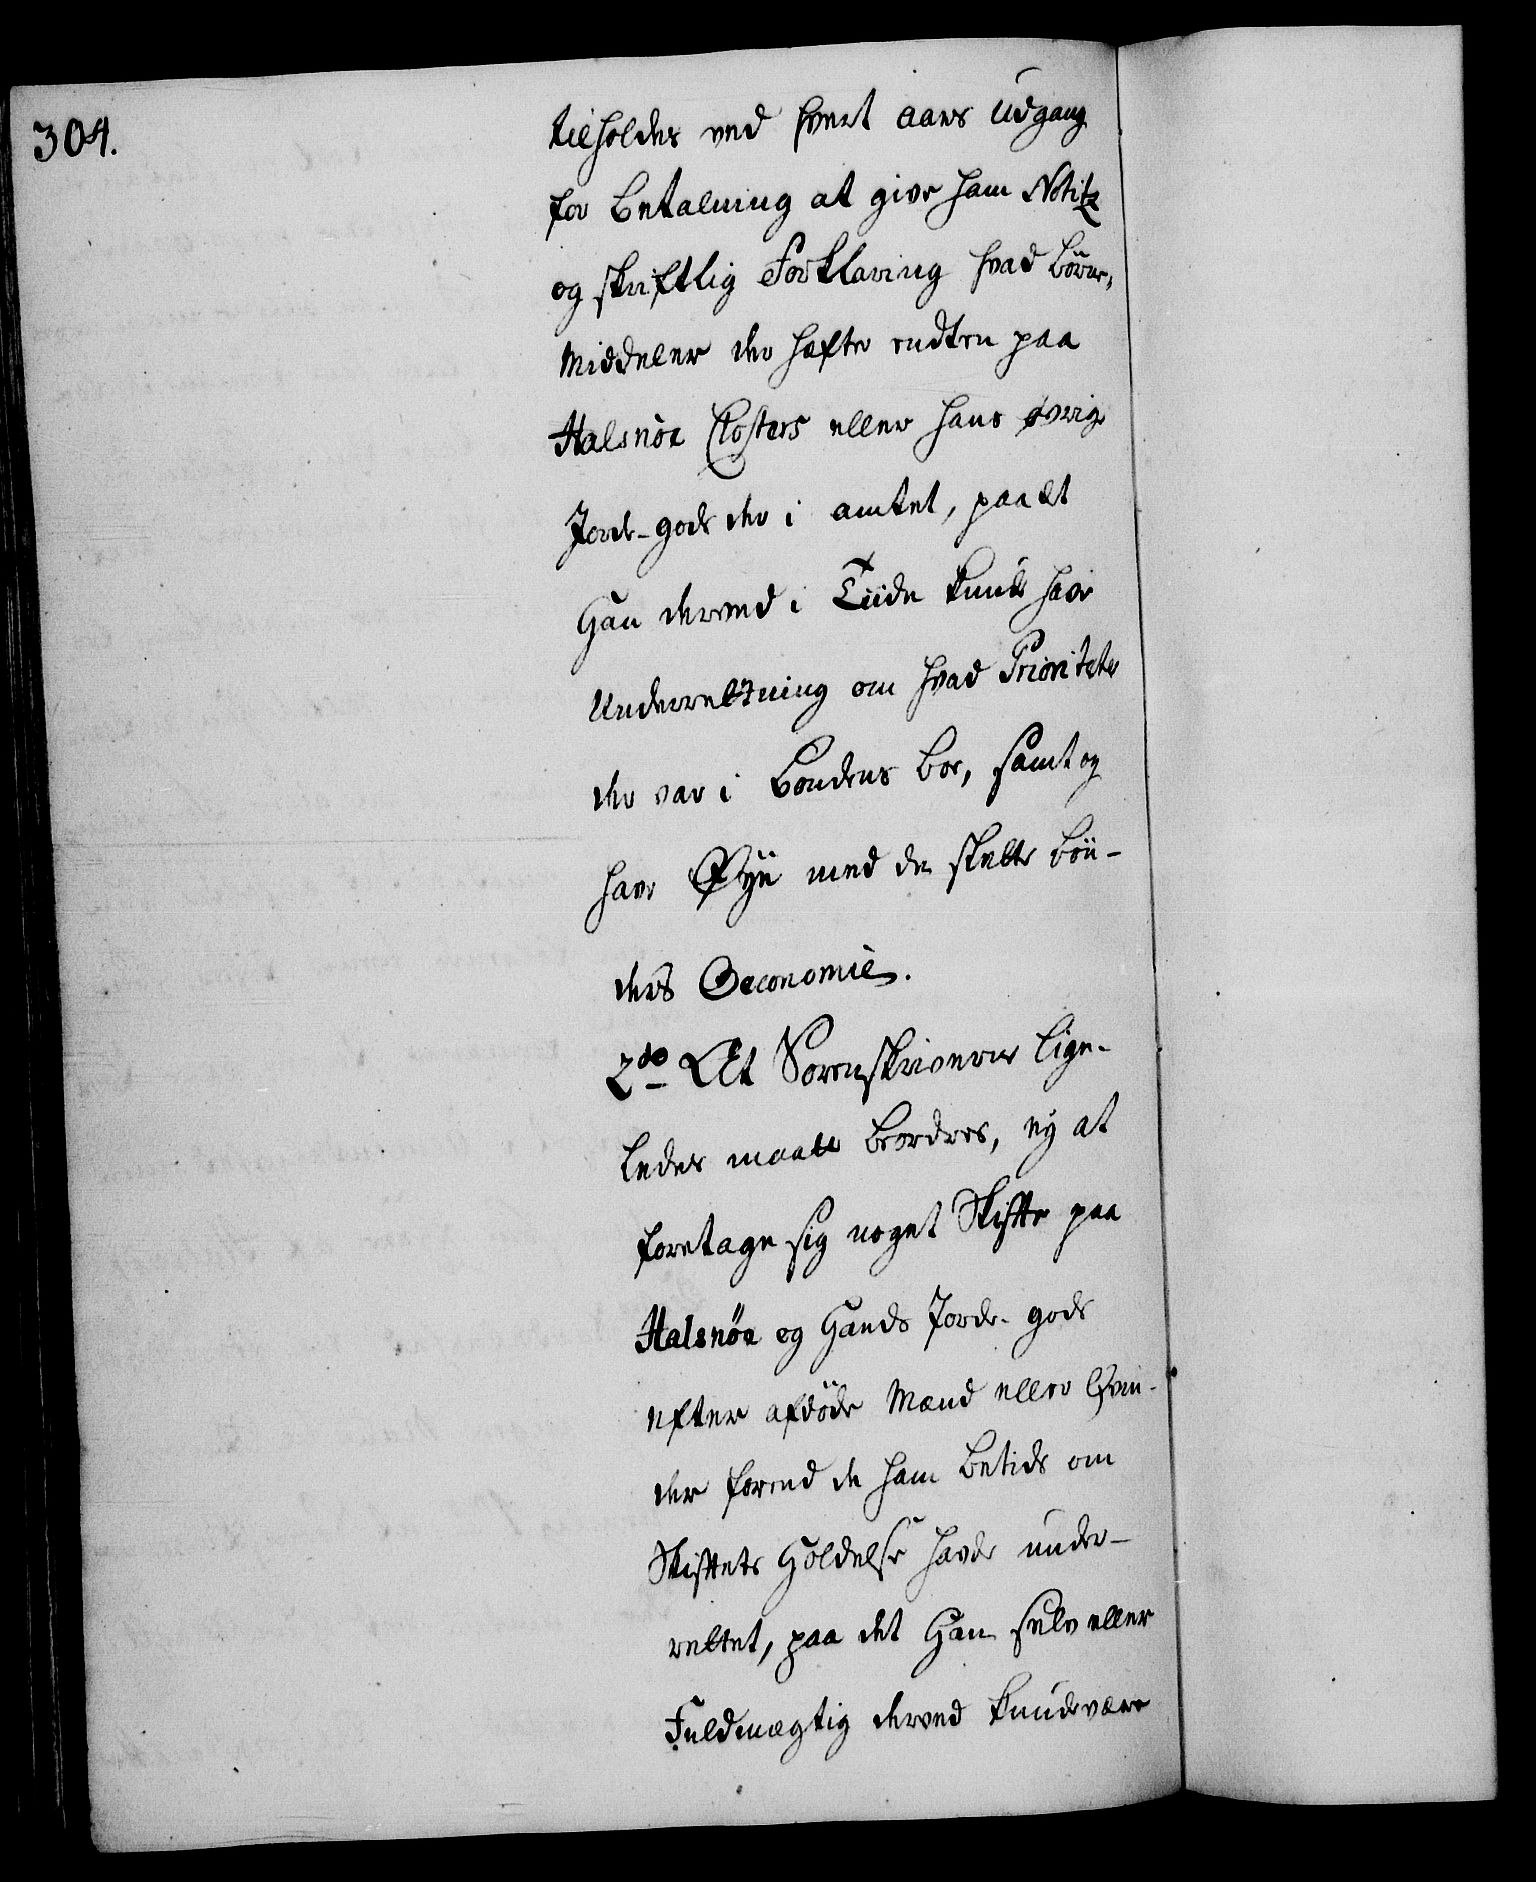 304.
tilholdes ved hvert aars Udgang
for betalning at give ham Notitz
og skriftlig Forklaring hvad børne,
Middeler der hæfter endten paa
Halsnöe Closters eller hans øvrige
Jorde-gods der i amtet, paa det
Han derved i Tiide kunde have
Underrettning om hvad Prioriteter
der var i bondens boe, samt og
have Øyn med de slette bön-
ders Oeconomie.
2do At Sorenskriverne lige-
ledes maatte beordres, ey at
foretage sig noget Skifte paa
Halsnöe og Hands Jorde-gods
efter afdöde Mænd eller Qvin-
der forend de ham betids om
Skiftets Holdelse havde under-
rettet, paa det Han selv eller
Fuldmægtig derved kunde være